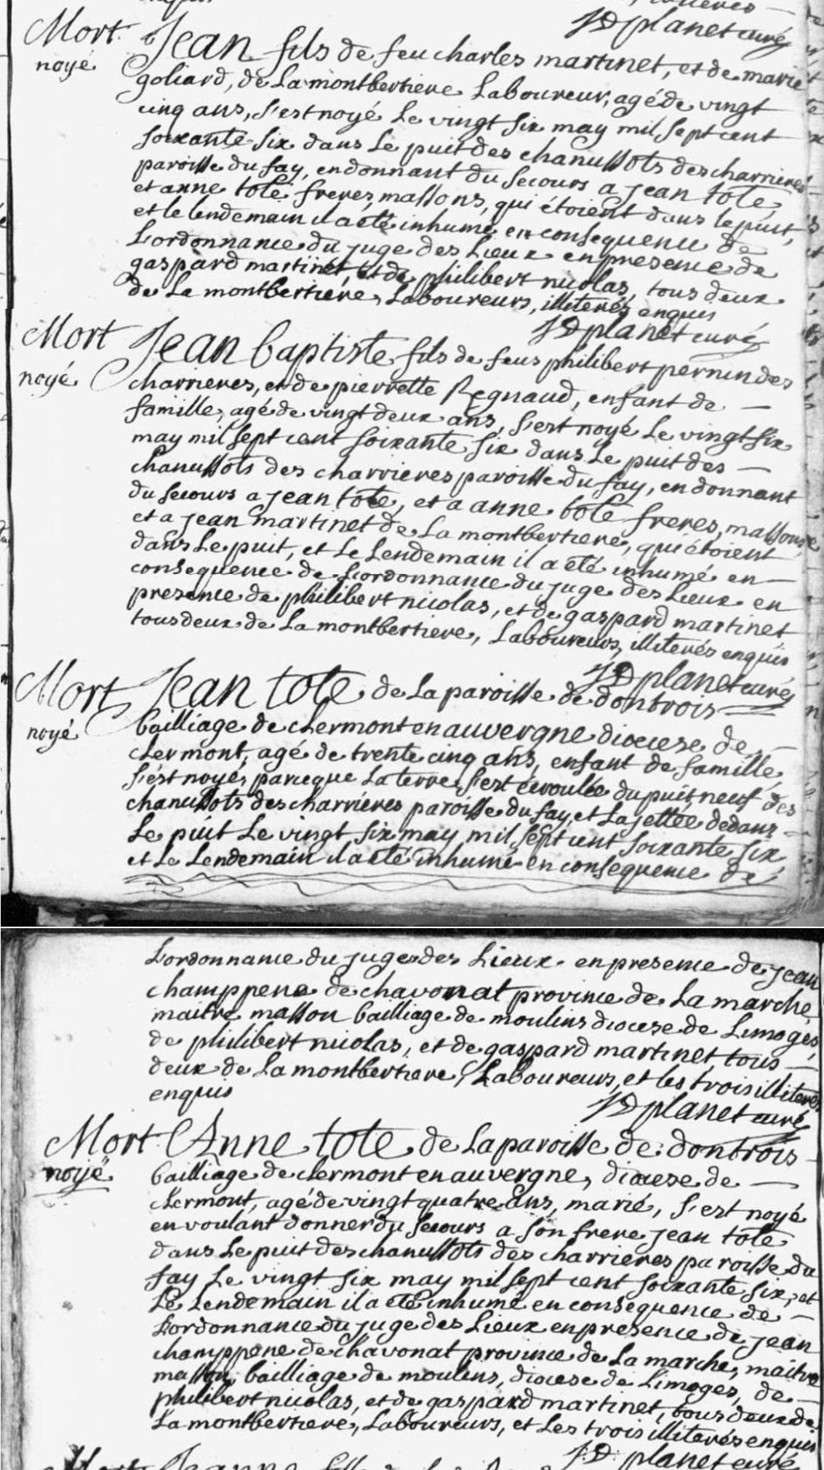 J D planet curé
Mort Jean fils de feu charles martinet, et de marie
noyé goliard, de La montbertiere Laboureur, agé de vingt
cinq ans, s'est noyé Le vingt six may mil sept cent
soixante six dans Le puit des chanussots des charrieres
paroisse du fay, en donnant du secours a jean tote,
et anne tote freres, massons, qui étoient dans le puit,
et le lendemain il a eté inhumé en consequence de
L'ordonnance du juge des Lieux en presence de
gaspard martinet, et de philibert nicolas, tous deux
de La montbertiere, Laboureurs, illiterés enquis
J D planet curé
Mort Jean baptiste fils de feus philibert pernin des
noyé charrieres, et de pierrette Regnaud, enfant de
famille, agé de vingt deux ans, s'est noyé Le vingt six
may mil sept cent soixante six dans Le puit des
chanussots des charrieres paroisse du fay, en donnant
du secours a jean tote, et a anne tote freres, massons,
et a jean martinet de La montbertiere, qui étoient
dans Le puit, et Le Lendemain il a eté inhumé en
consequence de L'ordonnance du juge des Lieux en
presence de philibert nicolas, et de gaspard martinet
tous deux de La montbertiere, Laboureurs, illiterés enquis
J D planet curé
Mort Jean tote de la paroisse de dontrois
noyé bailliage de clermont en auvergne diocese de
clermont, agé de trente cinq ans, enfant de famille,
s'est noyé, parceque La terre s'est ecroulée du puit neuf des
chanussots des charrieres paroisse du fay, et La jettée dedans
Le puit Le vingt six may mil sept cent soixante six
et Le Lendemain il a eté inhumé en consequence de
L'ordonnance du juge des Lieux en presence de jean
champpene de chavonat province de La marche,
maitre masson bailliage de moulins diocese de Limoges,
de philibert nicolas, et de gaspard martinet tous
deux de La montbertiere, Laboureurs, et les trois illiterés
enquis
J D planet curé
Mort Anne tote de La paroisse de dontrois
noyé bailliage de clermont en auvergne, diocese de
clermont, agé de vingt quatre ans, marié, s'est noyé
en voulant donner du secours a son frere jean tote
dans Le puit des chanussots des charrieres paroisse du
fay Le vingt six may mil sept cent soixante six, et
Le Lendemain il a eté inhumé en consequence de
L'ordonnance du juge des Lieux en presence de jean
champpene de chavonat province de La marche, maitre
masson, bailliage de moulins, diocese de Limoges, de
philibert nicolas, et de gaspard martinet, tous deux de
La montbertiere, Laboureurs, et Les trois illiterés enquis
J D planet curé